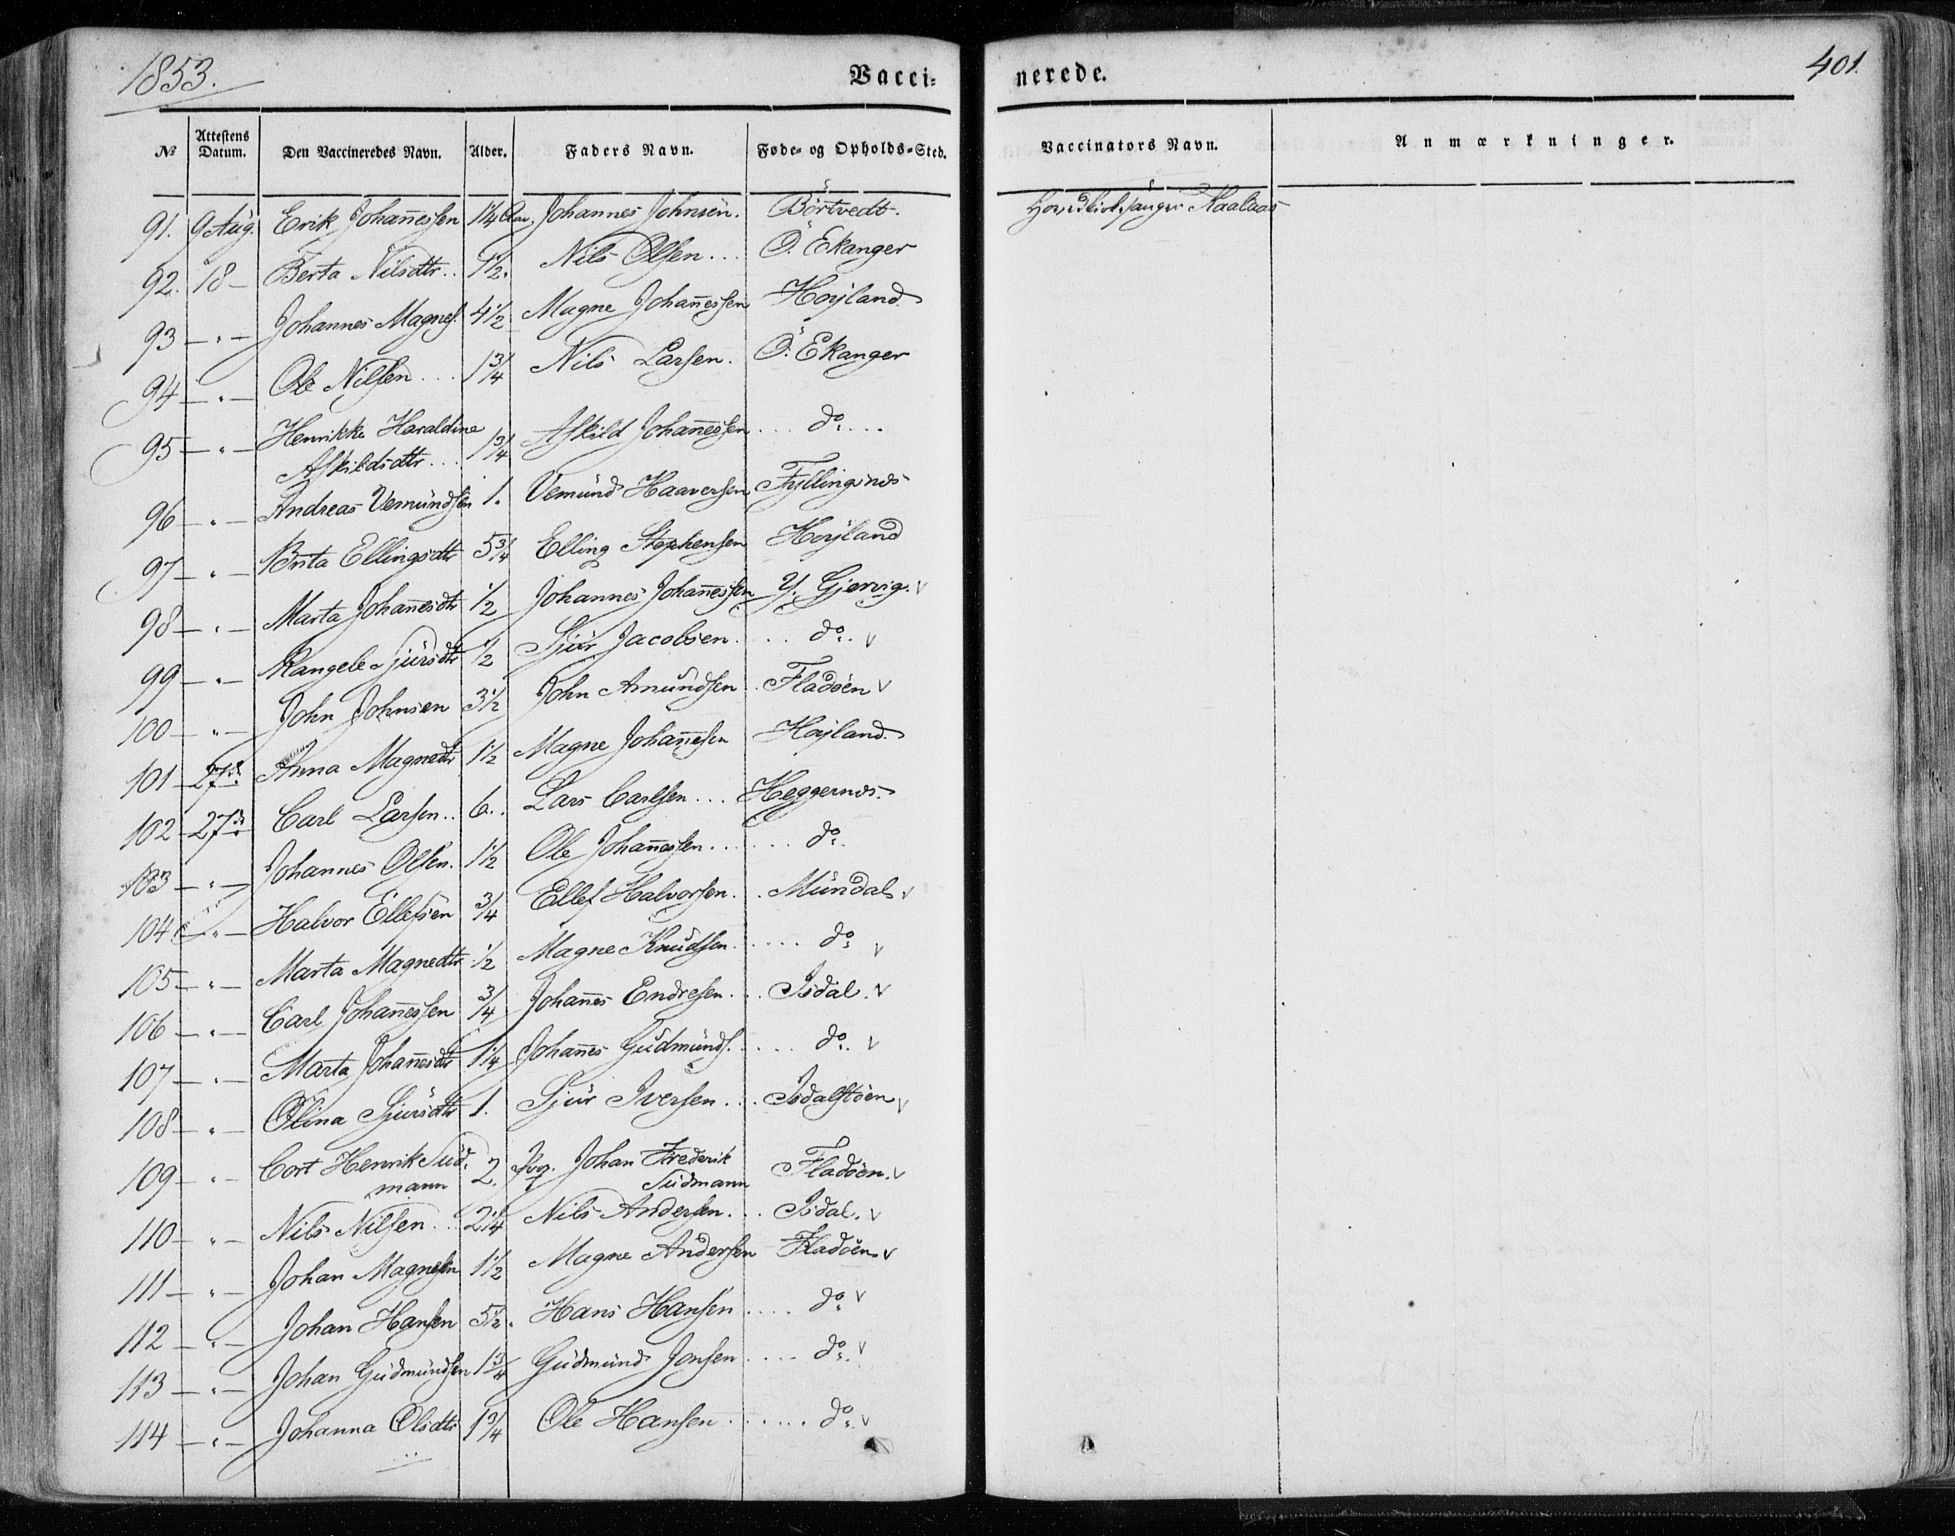 1853.
Vacci-
nerede.
401.
№ | Attestens Datum. | Den Vaccineredes Navn. | Alder. | Faders Navn. | Føde- og Opholds-Sted. | Vaccinators Navn. | Anmærkninger.
91. 9 Aug. Erik Johan̄essen 1¼ Aar. Johannes Johnsen. Börtvedt.
92. 18 — Berta Nilsdtr.. 1½. Nils Olsen... Ö. Ekanger
93 — " — Johannes Magnes. 4½ Magne Johan̄essen Hoyland
94 — " — Ole Nilsen... 1¾ Nils Larsen. Ö. Ekanger
95 — " — Henrikke Haraldine
Askildsdtr... 1¾ Askild Johan̄essen ... do. ...
96 — " — Andreas Vemundsen 1. Vemund Haaversen Fyllingsnes
97 — " — Brita Ellingsdtr 5¾ Elling Stephensen Hoyland
98 — " — Marta Johan̄esdtr ½ Johannes Johan̄essen Y. Gjervig. v
99 — " — Rangele Sjursdtr ½ Sjur Jacobsen. ... do. v
100 — " — John Johnsen 3½ John Amundsen. Fladöen v
101 — 27de Anna Magnedtr 1½ Magne Johan̄essen Hoyland.
102 — 27de Carl Larsen.. 6.. Lars Carlsen... Heggernes.
103 — " — Johannes Olsen. 1½ Ole Johan̄essen...... do.
104 — " — Halvor Ellefsen ¾ Ellef Halvorsen.. Mundal v
105 — " — Marta Magnedtr ½ Magne Knudsen..... do. v
106 — " — Carl Johan̄essen ¾ Johan̄es Endresen... Isdal. v
107 — " — Marta Johan̄esdtr 1¼ Johan̄es Gudmunds. .... do. v
108 — " — Olina Sjursdtr 1. Sjur Iversen... Isdalstöen v
109 — " — Cort Henrik Sud-
mann 2. Johan Frederik
Sudmann Fladöen. v
110 — " — Nils Nilsen.. 2¼ Nils Andersen... Isdal. v
111 — " — Johan Magnesen 1½ Magne Andersen Fladöen v
112 — " — Johan Hansen 5½. Hans Hansen.... do. v
113 — " — Johan Gudmundsen 1¾ Gudmund Jonsen.... do. v
114 — " — Johanna Olsdtr 1¾ Ole Hansen...... do. v